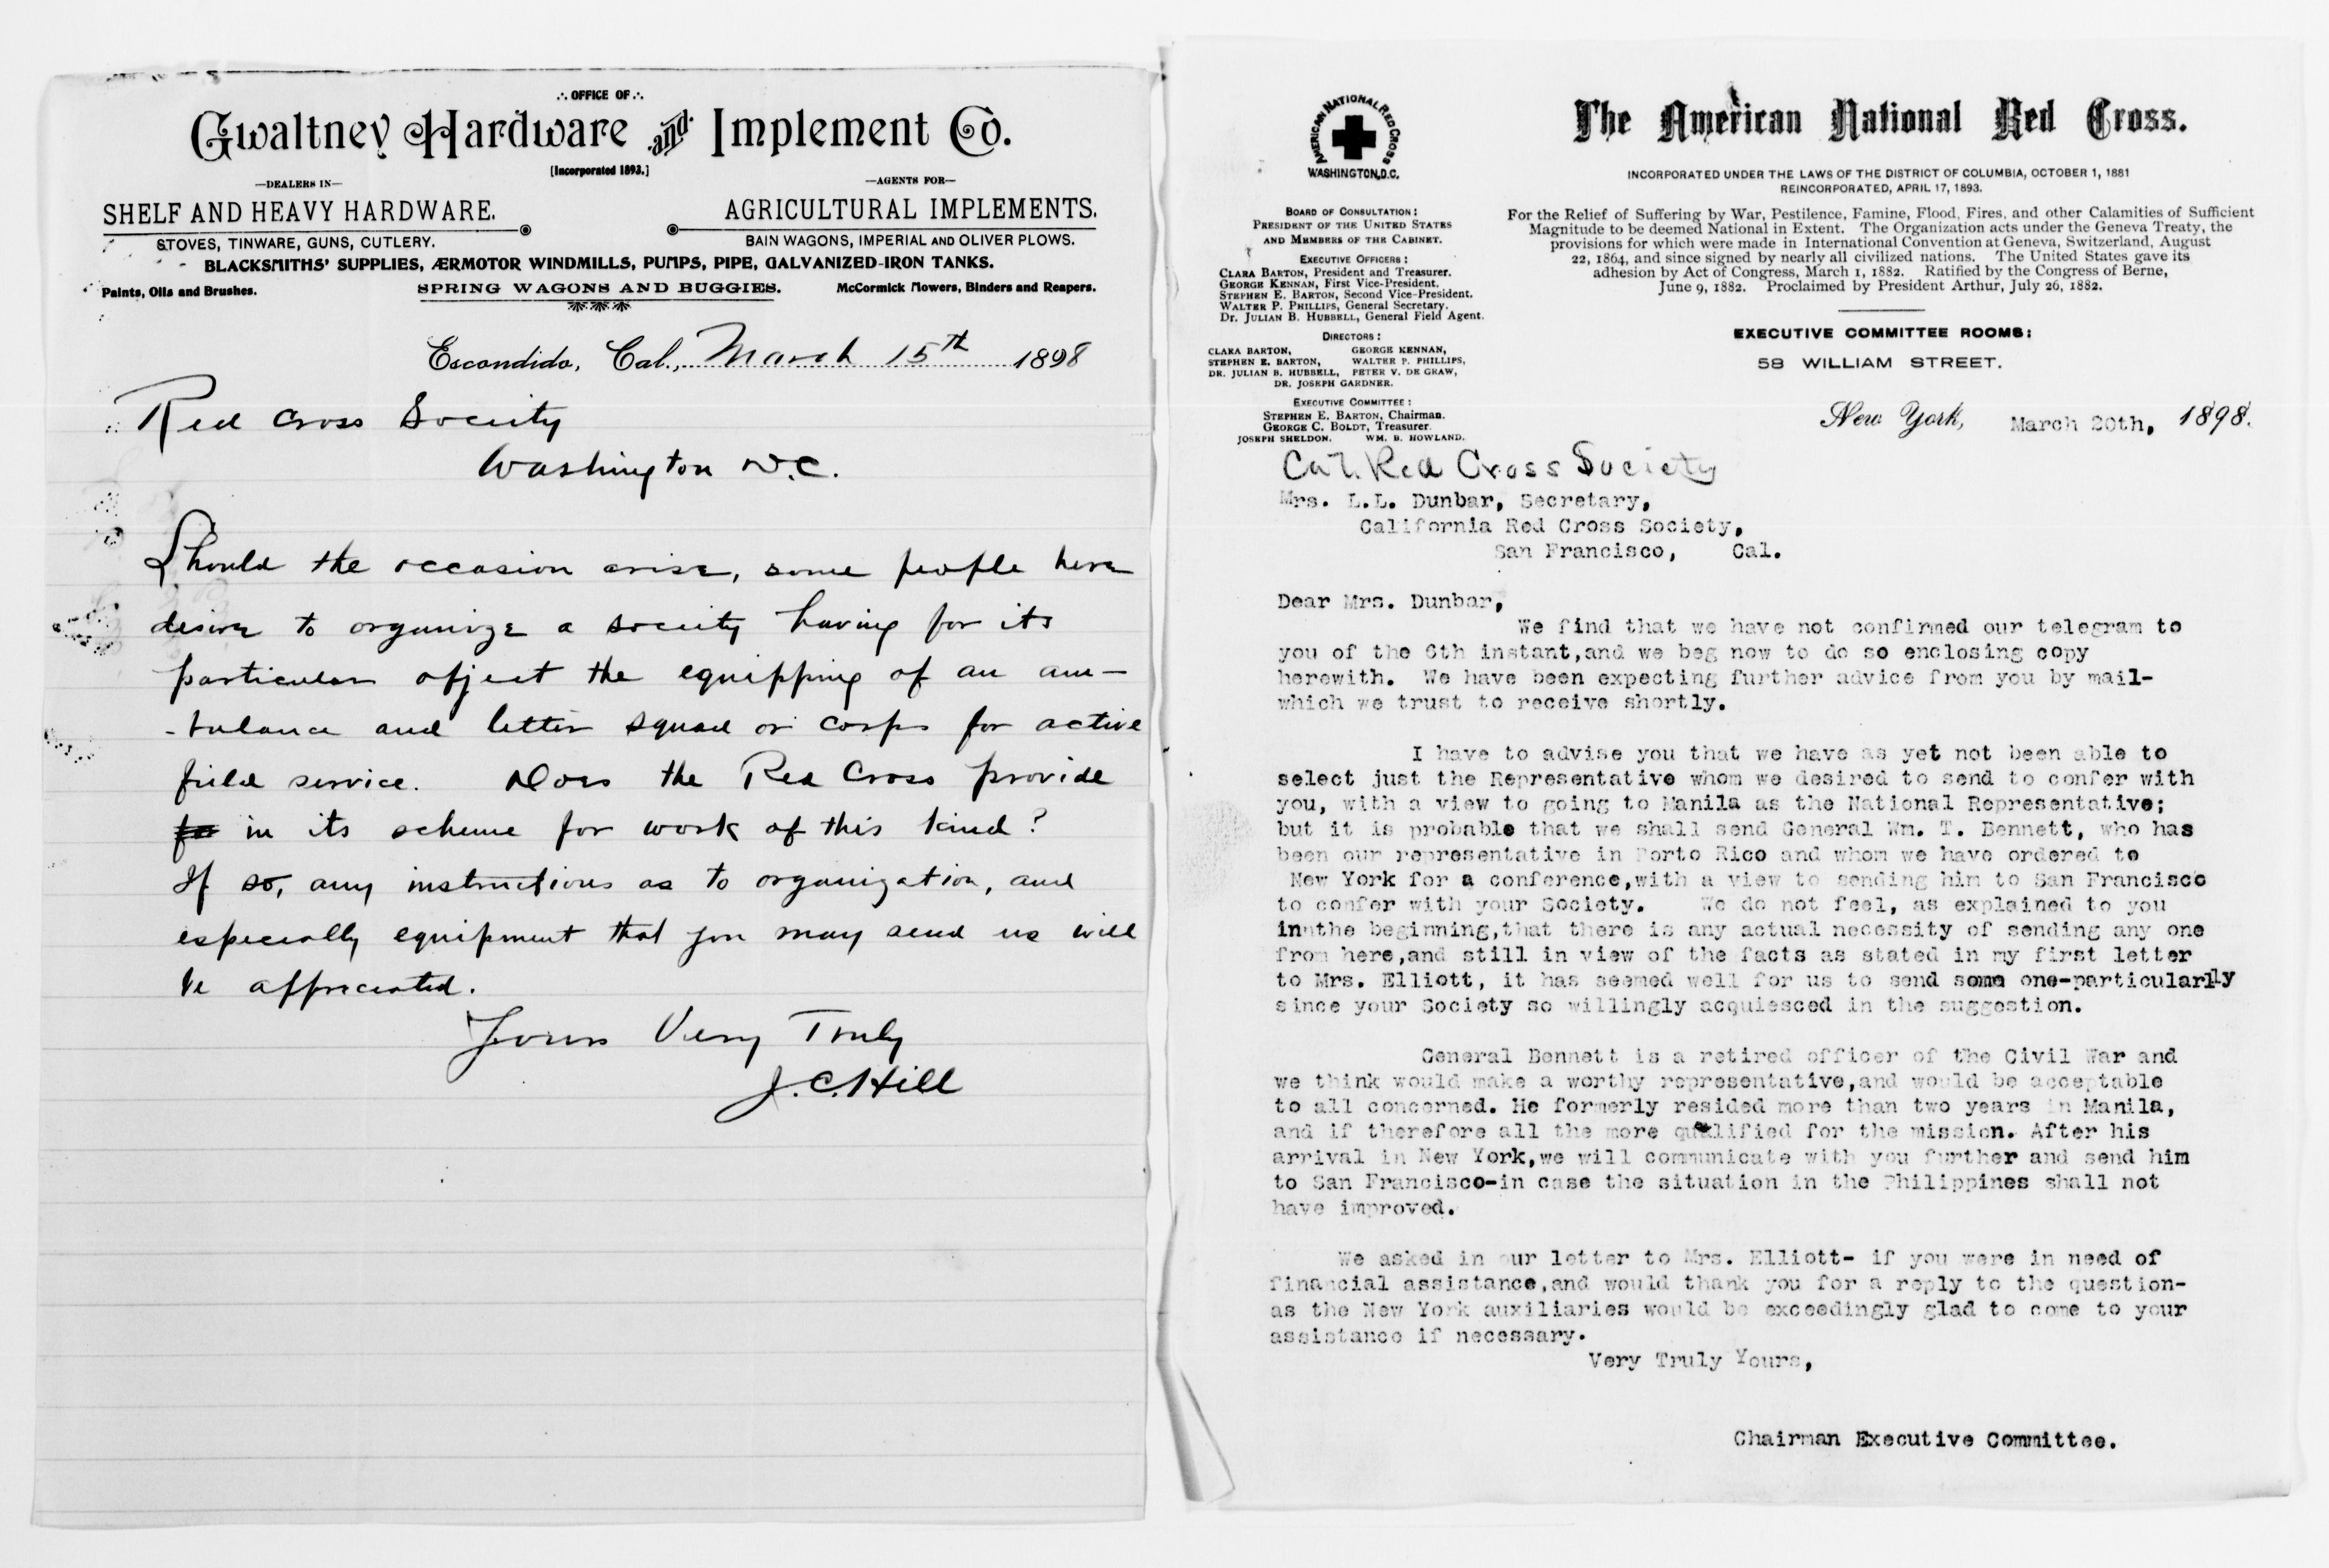 .·. OFFICE OF .·.
Gwaltney Hardware and Implement Co.
[Incorporated 1893.]
—DEALERS IN—
SHELF AND HEAVY HARDWARE.
STOVES, TINWARE, GUNS, CUTLERY.
—AGENTS FOR—
AGRICULTURAL IMPLEMENTS.
BAIN WAGONS, IMPERIAL AND OLIVER PLOWS.
BLACKSMITHS' SUPPLIES, ÆRMOTOR WINDMILLS, PUMPS, PIPE, GALVANIZED-IRON TANKS.
Paints, Oils and Brushes. SPRING WAGONS AND BUGGIES. McCormick Mowers, Binders and Reapers.
Escondido, Cal., March 15th 1898
Red Cross Society
Washington D.C.
Should the occasion arise, some people here
desire to organize a society having for its
particular object the equipping of an am-
-bulance and litter squad or corps for active
field service. Does the Red Cross provide
for in its scheme for work of this kind?
If so, any instructions as to organization, and
especially equipment that you may send us will
be appreciated.
Yours Very Truly
J. C. Hill
AMERICAN NATIONAL RED CROSS
WASHINGTON, D.C.
The American National Red Cross.
INCORPORATED UNDER THE LAWS OF THE DISTRICT OF COLUMBIA, OCTOBER 1, 1881
REINCORPORATED, APRIL 17, 1893.
For the Relief of Suffering by War, Pestilence, Famine, Flood, Fires, and other Calamities of Sufficient
Magnitude to be deemed National in Extent. The Organization acts under the Geneva Treaty, the
provisions for which were made in International Convention at Geneva, Switzerland, August
22, 1864, and since signed by nearly all civilized nations. The United States gave its
adhesion by Act of Congress, March 1, 1882. Ratified by the Congress of Berne,
June 9, 1882. Proclaimed by President Arthur, July 26, 1882.
BOARD OF CONSULTATION:
PRESIDENT OF THE UNITED STATES
AND MEMBERS OF THE CABINET.
EXECUTIVE OFFICERS:
CLARA BARTON, President and Treasurer.
GEORGE KENNAN, First Vice-President.
STEPHEN E. BARTON, Second Vice-President.
WALTER P. PHILLIPS, General Secretary.
Dr. JULIAN B. HUBBELL, General Field Agent.
DIRECTORS:
CLARA BARTON, GEORGE KENNAN,
STEPHEN E. BARTON, WALTER P. PHILLIPS,
DR. JULIAN B. HUBBELL, PETER V. DE GRAW,
DR. JOSEPH GARDNER.
EXECUTIVE COMMITTEE:
STEPHEN E. BARTON, Chairman.
GEORGE C. BOLDT, Treasurer.
JOSEPH SHELDON. WM. B. HOWLAND.
EXECUTIVE COMMITTEE ROOMS:
58 WILLIAM STREET.
New York, March 20th, 1898.
Cal. Red Cross Society
Mrs. L.L. Dunbar, Secretary,
California Red Cross Society,
San Francisco, Cal.
Dear Mrs. Dunbar,
We find that we have not confirmed our telegram to
you of the 6th instant,and we beg now to do so enclosing copy
herewith. We have been expecting further advice from you by mail-
which we trust to receive shortly.
I have to advise you that we have as yet not been able to
select just the Representative whom we desired to send to confer with
you, with a view to going to Manila as the National Representative;
but it is probable that we shall send General Wm. T. Bennett, who has
been our representative in Porto Rico and whom we have ordered to
New York for a conference,with a view to sending him to San Francisco
to confer with your Society. We do not feel, as explained to you
in the beginning,that there is any actual necessity of sending any one
from here,and still in view of the facts as stated in my first letter
to Mrs. Elliott, it has seemed well for us to send some one-particularlly
since your Society so willingly acquiesced in the suggestion.
General Bennett is a retired officer of the Civil War and
we think would make a worthy representative,and would be acceptable
to all concerned. He formerly resided more than two years in Manila,
and if therefore all the more qualified for the mission. After his
arrival in New York,we will communicate with you further and send him
to San Francisco-in case the situation in the Philippines shall not
have improved.
We asked in our letter to Mrs. Elliott- if you were in need of
financial assistance,and would thank you for a reply to the question-
as the New York auxiliaries would be exceedingly glad to come to your
assistance if necessary.
Very Truly Yours,
Chairman Executive Committee.